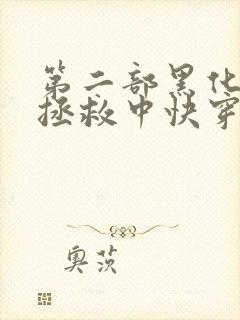 第二部黑化
拯救中快穿
奥茨